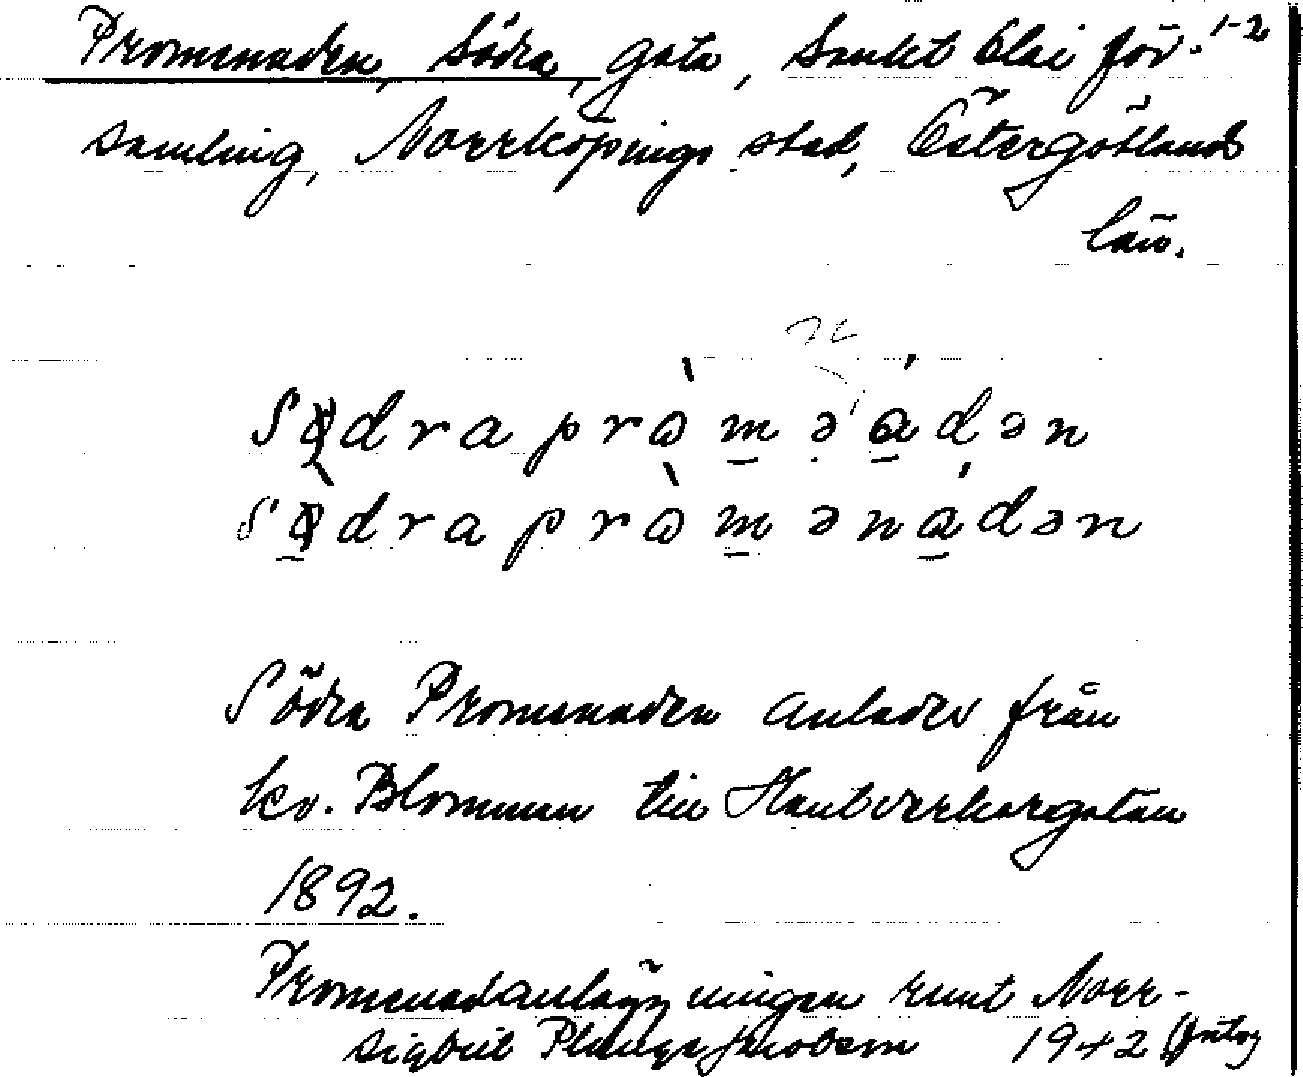 Promenaden, Södra, gata, Sankt Olai för- 1-2
samling, Norrköpings stad, Östergötlands
län.
Sødra pròməádən
Sø̀dra pròmənádən
Södra Promenaden anlades från
kv. Blomman till Hantverkaregatan
1892.
Promenadanläggningen runt Norr-
1942